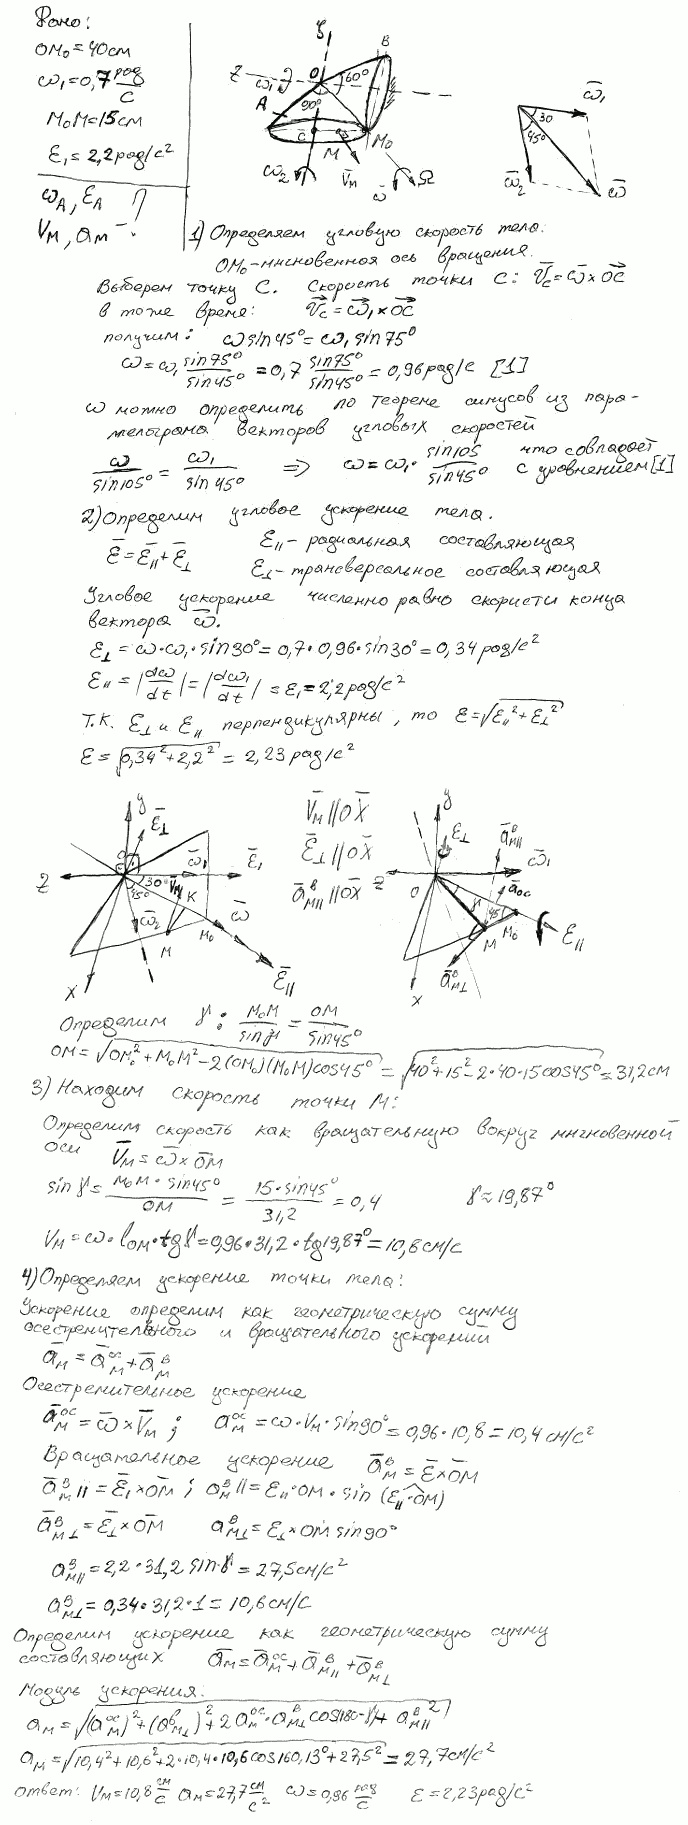 Дано:
OM₀=40см
ω₁=0,7 рад/с
M₀M=15см
ε₁=2,2рад/с²
ωA, εA ?
VM, aM -?
ζ₁
Z
ω₁
O
60°
B
A
90°
C
M
M₀
ω̄₂
V̄M
ω̄
Ω
ω̄₁
30
45°
ω̄₂
ω̄
1) Определяем угловую скорость тела.
OM₀-мгновенная ось вращения.
Выберем точку C. Скорость точки C: V̄c=ω̄×OC
в тоже время: V̄c=ω̄₁×OC
получим: ωsin45°=ω₁sin75°
ω=ω₁ sin75°/sin45° = 0,7 sin75°/sin45° = 0,96рад/с [1]
ω можно определить по теореме синусов из пара-
лелограма векторов угловых скоростей
ω/sin105° = ω₁/sin45° ⇒ ω=ω₁· sin105/sin45° что совпадает с уровнением[1]
2) Определим угловое ускорение тела.
ε̄=ε̄∥+ε̄⊥ ε∥- радиальная составляющая
ε⊥-трансверсальное составляющая
Угловое ускорение численно равно скорости конца
вектора ω̄.
ε⊥=ω·ω₁·sin30°=0,7·0,96·sin30°=0,34рад/с²
ε∥=|dω/dt|=|dω₁/dt|=ε₁=2,2рад/с²
Т.к. ε⊥ и ε∥ перпендикулярны, то ε=√(ε∥²+ε⊥²)
ε=√(0,34²+2,2²)=2,23рад/с²
y
ε̄⊥
ω̄₁
ε̄₁
Z
O
30°
45°
V̄M
K
ω̄
ω̄₂
M
M₀
X
ε̄∥
V̄M∥OX̄
ε̄⊥∥OX̄
āᴮM∥∥OX̄
y
ε̄⊥
āᴮM∥
ω̄₁
Z
O
āoc
γ
45°
M
M₀
ε∥
āᴮM⊥
X
Определим γ: M₀M/sinγ = OM/sin45°
OM=√(OM₀²+M₀M²-2(OM₀)(M₀M)cos45°)=√(40²+15²-2·40·15cos45°)=31,2см
3) Находим скорость точки M:
Определим скорость как вращательную вокруг мнгновенной
оси V̄M=ω̄×OM
sinγ= M₀M·sin45°/OM = 15·sin45°/31,2 = 0,4 γ≈19,87°
VM=ω·lOM·tgγ=0,96·31,2·tg19,87°=10,8см/с
4) Определяем ускорение точки тела:
Ускорение определим как геометрическую сумму
осестремительного и вращательного ускорений
āM=āᵒᶜM+āᴮM
Осестремительное ускорение
āᵒᶜM=ω̄×V̄M; aᵒᶜM=ω·VM·sin90°=0,96·10,8=10,4см/с²
Вращательное ускорение āᴮM=ε̄×OM
āᴮM∥=ε̄₁×OM; aᴮM∥=ε∥·OM·sin(ε∥·OM)
āᴮM⊥=ε̄⊥×OM aᴮM⊥=ε⊥×OMsin90°
aᴮM∥=2,2·31,2sinγ=27,5см/с²
aᴮM⊥=0,34·31,2·1=10,6см/с
Определим ускорение как геометрическую сумму
составляющих āM=āᵒᶜM+āᴮM∥+āᴮM⊥
Модуль ускорения:
aM=√((aᵒᶜM)²+(aᴮM⊥)²+2aᵒᶜM·aᴮM⊥cos(180-γ)+aᴮM∥²)
aM=√(10,4²+10,6²+2·10,4·10,6cos160,13°+27,5²)=27,7см/с²
Ответ: VM=10,8 см/с aM=27,7 см/с² ω=0,96 рад/с ε=2,23рад/с²